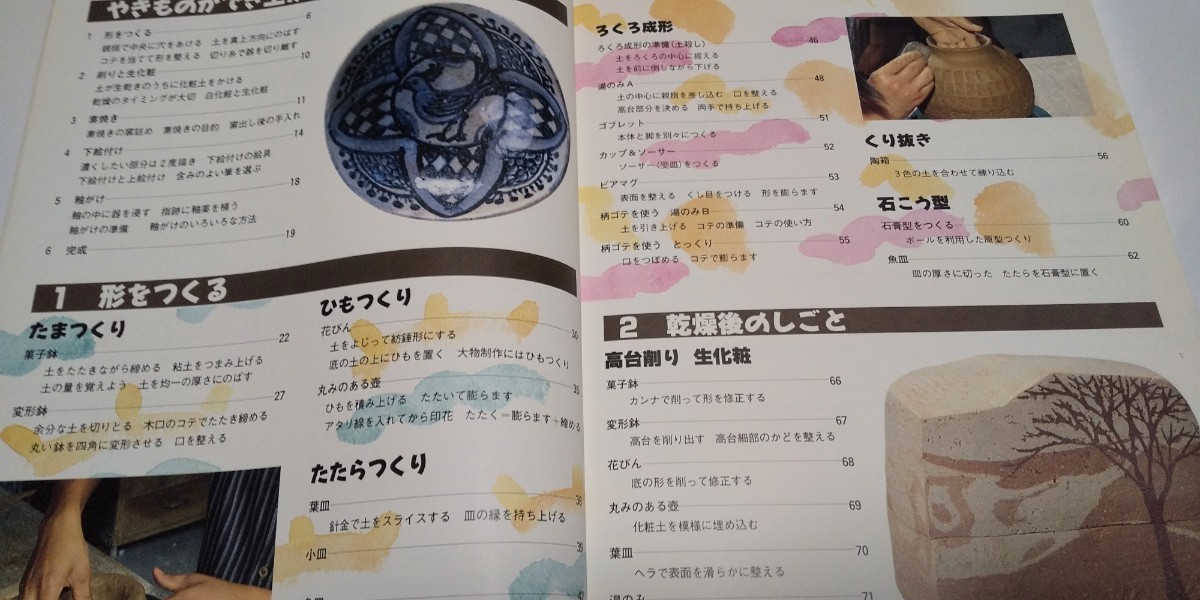 やきものができ上
1 形をつくる 6
親指で中央に穴をあける 土を真上方向にのばす
コテを当てて形を整える 切り糸で器を切り離す
2 削りと生化粧 10
土が生乾きのうちに化粧土をかける
乾燥のタイミングが大切 白化粧と生化粧
3 素焼き 11
素焼きの窯詰め 素焼きの目的 窯出し後の手入れ
4 下絵付け 14
濃くしたい部分は2度描き 下絵付けの絵具
下絵付けと上絵付け 含みのよい筆を選ぶ
5 釉がけ 18
釉の中に器を浸す 指跡に釉薬を補う
釉がけの準備 釉がけのいろいろな方法
6 完成 19
1 形をつくる
たまつくり
菓子鉢 22
土をたたきながら締める 粘土をつまみ上げる
土の量を覚えよう 土を均一の厚さにのばす
変形鉢 27
余分な土を切りとる 木口のコテでたたき締める
丸い鉢を四角に変形させる 口を整える
ひもつくり
花びん 30
土をよじって紡錘形にする
底の土の上にひもを置く 大物制作にはひもつくり
丸みのある壺 35
ひもを積み上げる たたいて膨らます
アタリ線を入れてから印花 たたく=膨らます+締める
たたらつくり
葉皿 38
針金で土をスライスする 皿の縁を持ち上げる
小皿 39
42
ろくろ成形
ろくろ成形の準備(土殺し) 46
土をろくろの中心に据える
土を前に倒しながら下げる
湯のみA 48
土の中心に親指を差し込む 口を整える
高台部分を決める 両手で持ち上げる
ゴブレット 51
本体と脚を別々につくる
カップ&ソーサー 52
ソーサー(受皿)をつくる
ビアマグ 53
表面を整える くし目をつける 形を膨らます
柄ゴテを使う 湯のみB 54
土を引き上げる コテの準備 コテの使い方
柄ゴテを使う とっくり 55
口をつぼめる コテで膨らます
くり抜き
陶箱 56
3色の土を合わせて練り込む
石こう型
石膏型をつくる 60
ボールを利用した原型つくり
魚皿 62
皿の厚さに切った たたらを石膏型に置く
2 乾燥後のしごと
高台削り 生化粧
菓子鉢 66
カンナで削って形を修正する
変形鉢 67
高台を削り出す 高台細部のかどを整える
花びん 68
底の形を削って修正する
丸みのある壺 69
化粧土を模様に埋め込む
葉皿 70
ヘラで表面を滑らかに整える
湯のみ 71